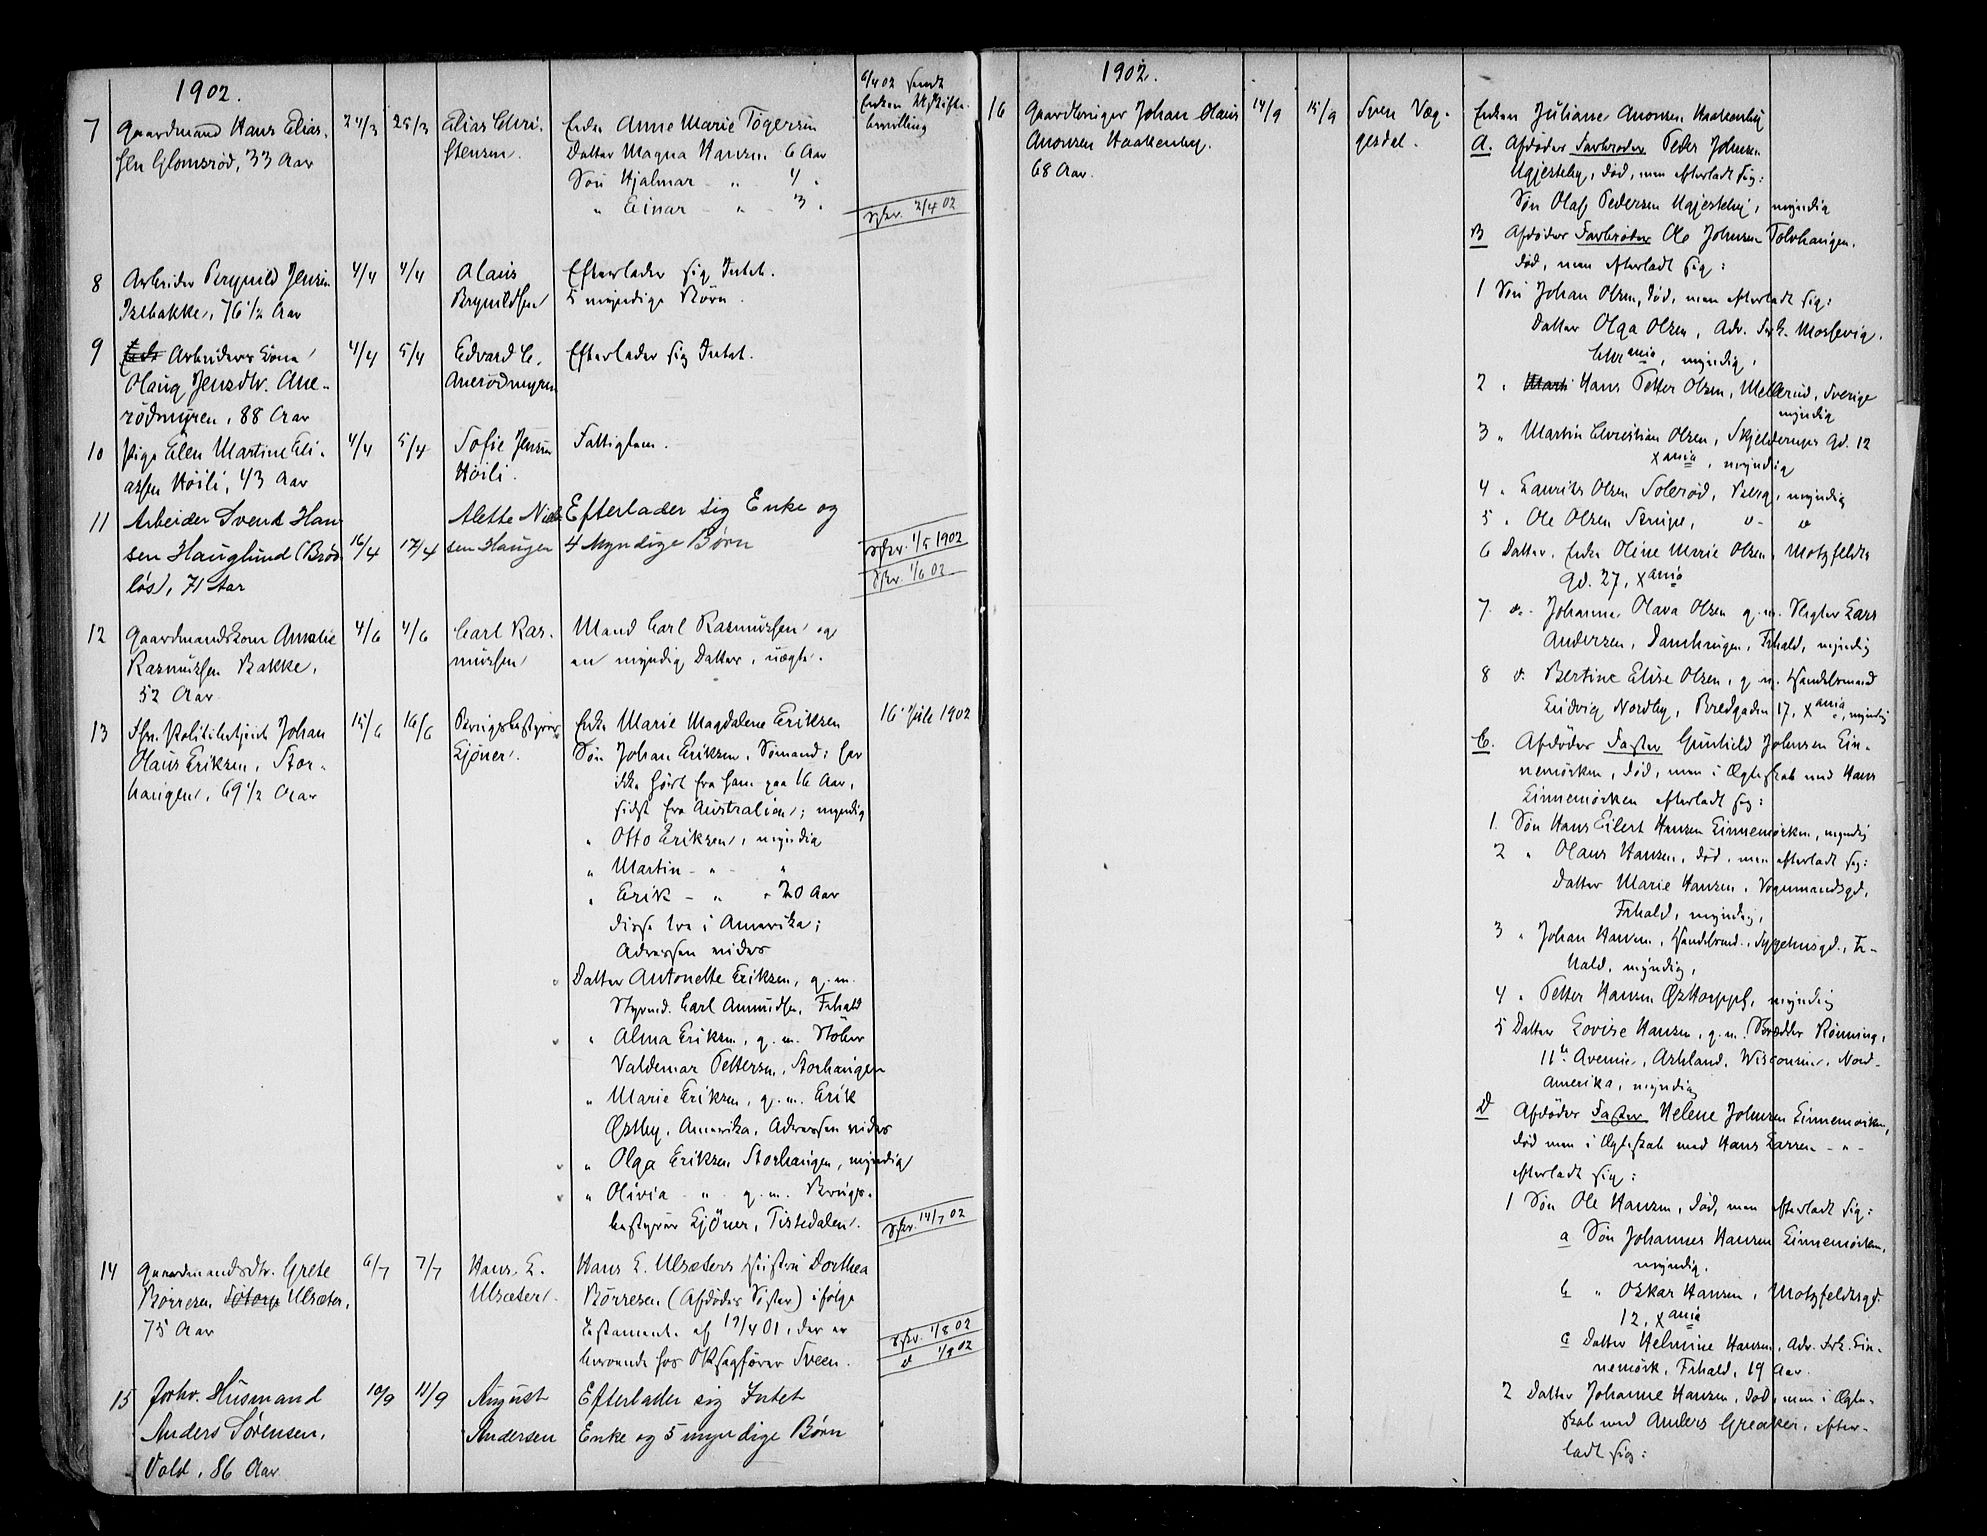 1902.
6/4 02 sendt
Enken Skifte-
bevilling
7 Gaardmand Hans Elias- 24/3 25/3 Elias Chri- Enke Anne Marie Tøgersen
sen Glomsrød, 33 Aar stensen. Datter Magna Hansen 6 Aar
Søn Hjalmar - „ 4 „
„ Einar - „ - 3 „ 2/4 02
8 Arbeider Brynild Jensen 4/4 4/4 Olaus Efterlader sig Intet.
Isebakke, 76 1/2 Aar Brynildsen 5 myndige Børn.
9 Arbeiders Kone 4/4 5/4 Edvard E. Efterlader sig Intet.
Olaug Jensdtr. Ane- Anerødmyren
rødmyren, 88 Aar
10 Pige Elen Martine Eli- 4/4 5/4 Sofie Jensen Fattiglem.
assen Høili, 43 Aar Høili.
11 Arbeider Svend Han- Alette Niel- Efterlader sig Enke og
sen Hauglund (Brød- 16/4 17/4 sen Haugen 4 Myndige Børn 1/5 1902
løs), 71 Aar 1/6 02
12 Gaardmandskone Amalie 4/6 4/6 Carl Ras- Mand Carl Rasmussen og
Rasmussen Bakke, mussen en myndig Datter, uægte.
52 Aar
13 Fhv. Politibetjent Johan 15/6 16/6 Brugsbestyrer Enke Marie Magdalene Eriksen 16 Juli 1902
Olaus Eriksen, Stor- Kjøner. Søn Johan Eriksen, Sømand; har
haugen, 69 1/2 Aar ikke hørt fra ham paa 16 Aar,
sidst fra Australien; myndig
„ Otto Eriksen, myndig
„ Martin - „ - „
„ Erik - „ - 20 Aar
disse tre i Amerika;
Adressen vides
Datter Antonette Eriksen, g. m.
Styrmd. Carl Amundsen, Frhald
„ Alma Eriksen, g. m. Støber
Valdemar Pettersen, Storhaugen
„ Marie Eriksen, g. m. Erik
Østby, Amerika, Adressen vides
„ Olga Eriksen Storhaugen, myndig
„ Olivia - „ - g. m. Brugs-
bestyrer Kjøner, Tistedalen. 14/7 02
14 Gaardmandsdtr. Grete 6/7 7/7 Hans L. Hans L. Ulsæters Hustru Dorthea
Børresen Ulsæter, Ulsæter. Børresen (Afdødes Søster) ifølge
75 Aar Testamente af 17/4 01, der er
beroende hos ORsagfører Sveen. 1/8 02
1/9 02
15 Forhv. Husmand 10/9 11/9 August Efterlader sig Intet
Anders Sørensen, Andersen Enke og 5 myndige Børn
Vold, 86 Aar
1902.
16 Gaardbruger Johan Olaus 14/9 15/9 Sven Væg- Enken Juliane Anonsen Haakenby
Anonsen Haakenby. gesdal. A. Afdødes Farbroder Peder Johnsen
68 Aar. Ugjesteby, død, men efterladt sig:
Søn Olaf Pedersen Ugjesteby, myndig
B Afdødes Farbroder Ole Johnsen Tolvhaugen,
død, men efterladt sig:
1 Søn Johan Olsen, død, men efterladt sig:
Datter Olga Olsen, Adr. Frk. Mossevig,
Chrania, myndig,
2 „ Hans Petter Olsen, Mellerud, Sverige
myndig
3 „ Martin Christian Olsen, Skjelderups Gd. 12
Xania, myndig
4 „ Laurits Olsen Solerød, Berg, myndig
5 „ Ole Olsen Stripe, do - do
6 Datter, Enke Oline Marie Olsen, Motzfeldts
Gd. 27, Xania
7 do. Johanne Olava Olsen g. m. Slagter Lars
Andersen, Damhaugen, Frhald, myndig
8 do. Bertine Elise Olsen, g. m. Handelsmand
Ludvig Nordby, Bredgaden 17, Xania, myndig
C. Afdødes Faster Gunhild Johnsen Lin-
nemørken, død, men i Ægteskab med Hans
Linnemørken efterladt sig:
1. Søn Hans Eilert Hansen Linnemørken, myndig
2 „ Olaus Hansen, død, men efterladt sig:
Datter Marie Hansen, Vognmandsgd,
Frhald, myndig,
3 „ Johan Hansen, Handelsmd., Sygehusgd., Fr-
hald, myndig,
4 „ Petter Hansen, myndig
5 Datter Lovise Hansen, g. m. Skrædder Rønning,
11te Avenue, Ashland, Wisconsin, Nord-
Amerika, myndig
D Afdødes Faster Helene Johnsen Linnemørken,
død men i Ægteskab med Hans Larsen - „ -
efterladt sig:
1 Søn Ole Hansen, død, men efterladt sig:
a Søn Johannes Hansen Linnemørken,
myndig.
b „ Oskar Hansen, Motzfeldtsgd.
12, Xania
c Datter Helmine Hansen, Adr. Frk. Lin-
nemørk, Frhald, 19 Aar.
2 Datter Johanne Hansen, død, men i Ægte-
skab med Anders Greaker, efter-
ladt sig: